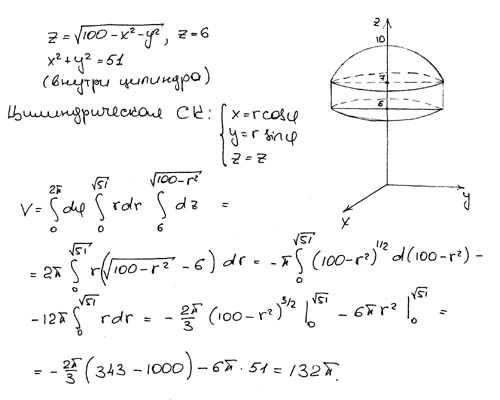 z = √(100 − x² − y²), z = 6
x² + y² = 51
(внутри цилиндра)
Цилиндрическая СК: { x = r cos φ
y = r sin φ
z = z
z
10
7
6
x
y
V = ∫₀^{2π} dφ ∫₀^{√51} r dr ∫₆^{√(100−r²)} dz =
= 2π ∫₀^{√51} r(√(100−r²) − 6) dr = −π ∫₀^{√51} (100−r²)^{1/2} d(100−r²) −
− 12π ∫₀^{√51} r dr = − 2π/3 (100−r²)^{3/2} |₀^{√51} − 6π r² |₀^{√51} =
= − 2π/3 (343 − 1000) − 6π · 51 = 132π.